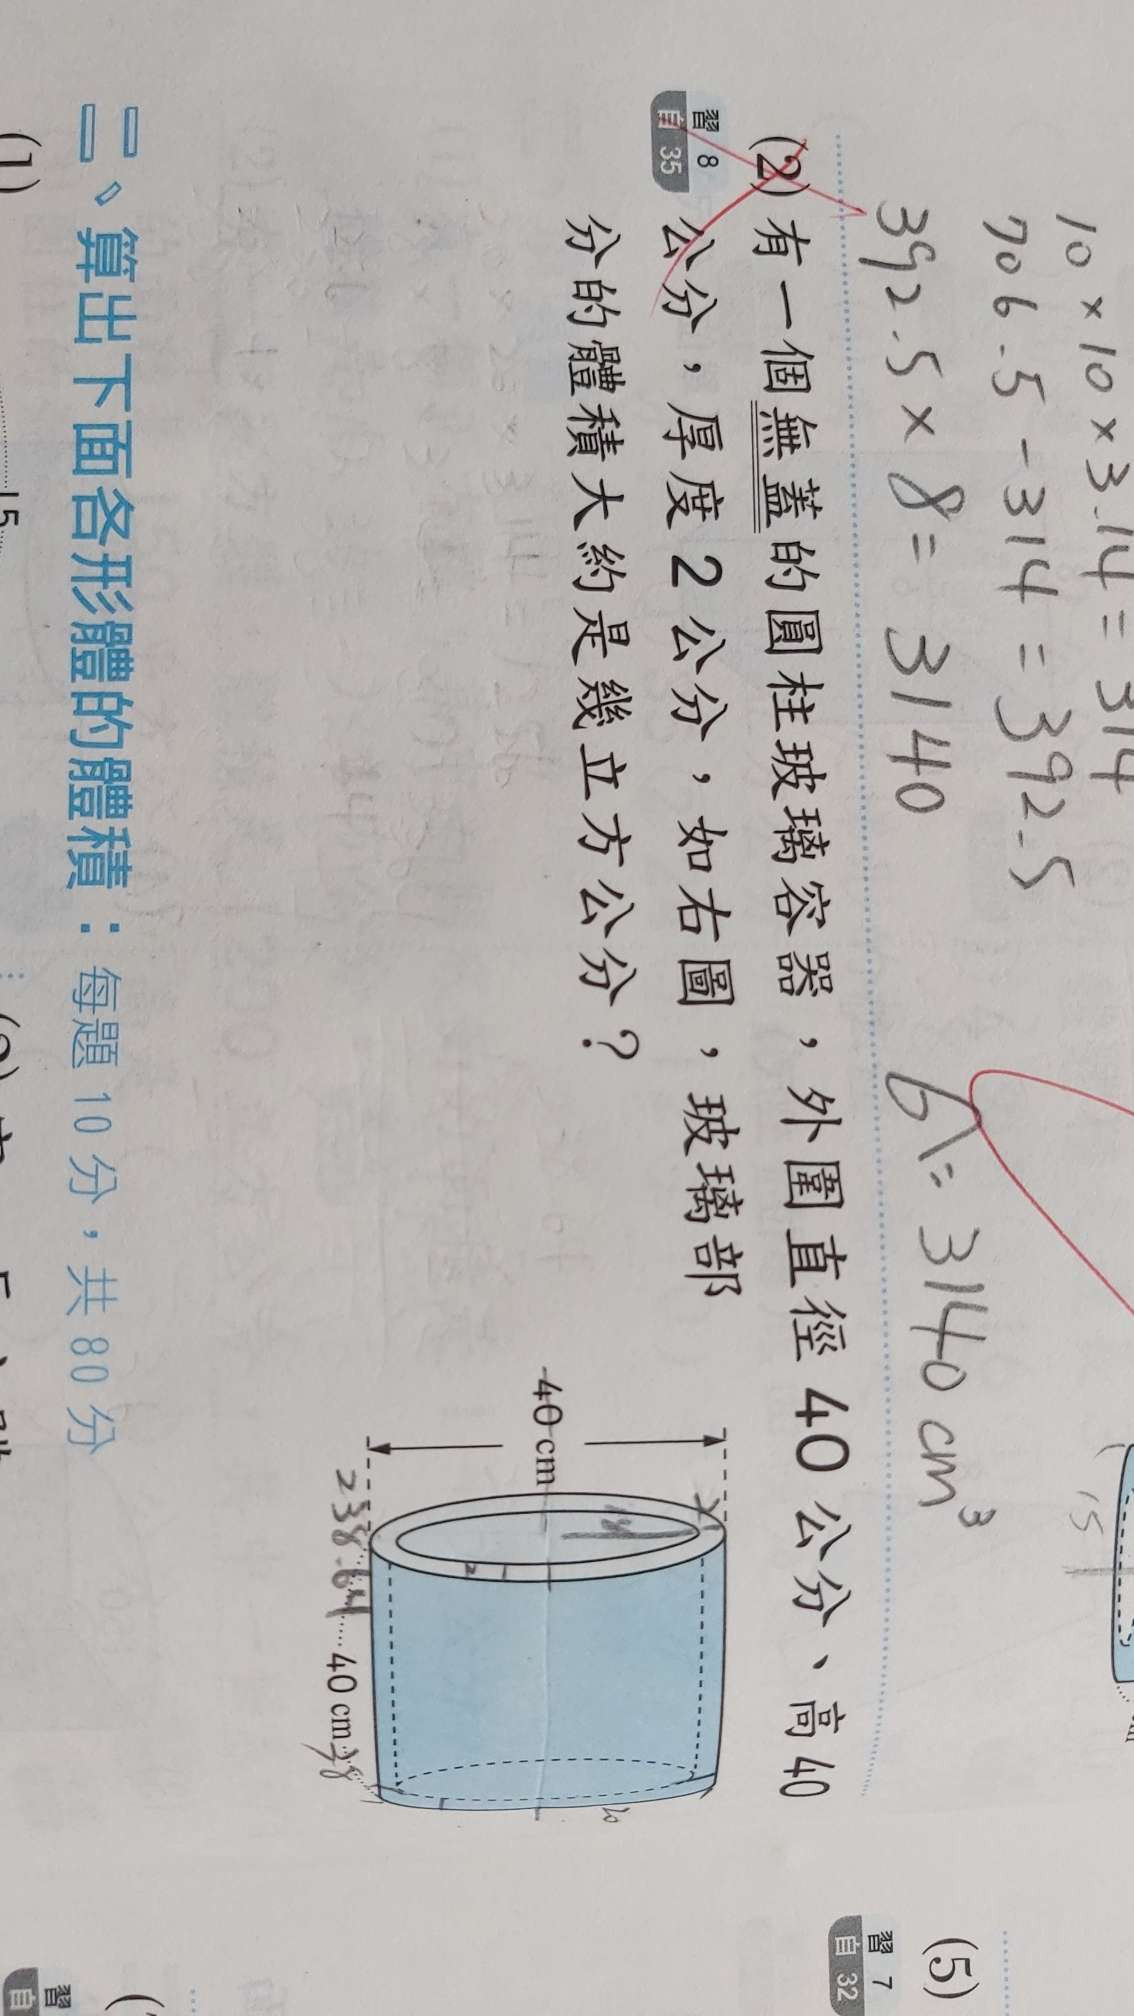 10×10×3.14=314
706.5-314=392.5
392.5×8=3140
A=3140cm³
15
(2) 有一個無蓋的圓柱玻璃容器，外圍直徑40公分、高40
習 8
自 35
公分，厚度2公分，如右圖，玻璃部
分的體積大約是幾立方公分？
40 cm
2
18
2
38
40 cm
(5)
習 7
自 32
二、算出下面各形體的體積：每題10分，共80分
(1)
15
習
自